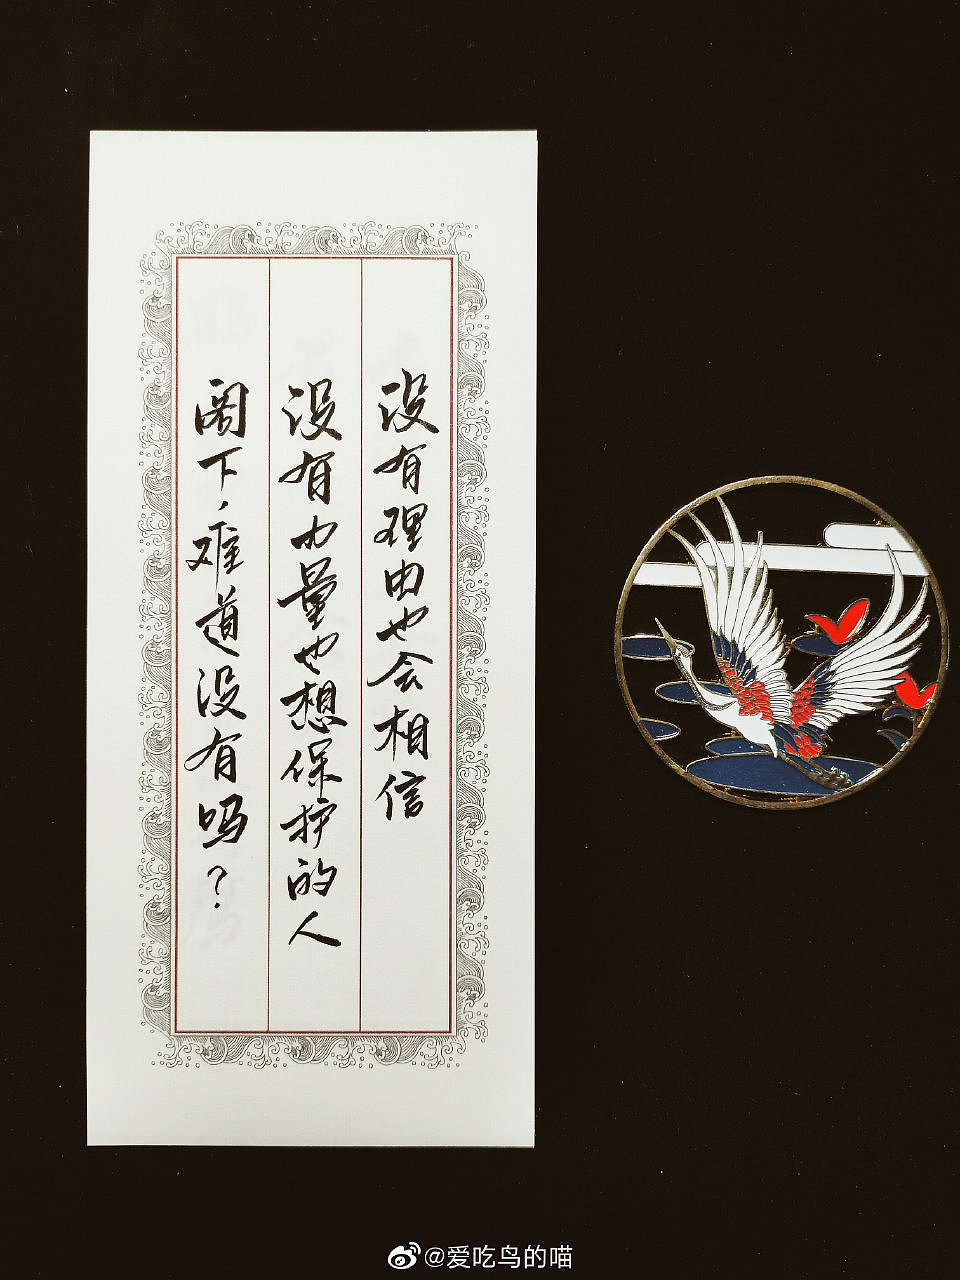 没有理由也会相信
没有力量也想保护的人
阁下，难道没有吗？
@爱吃鸟的喵